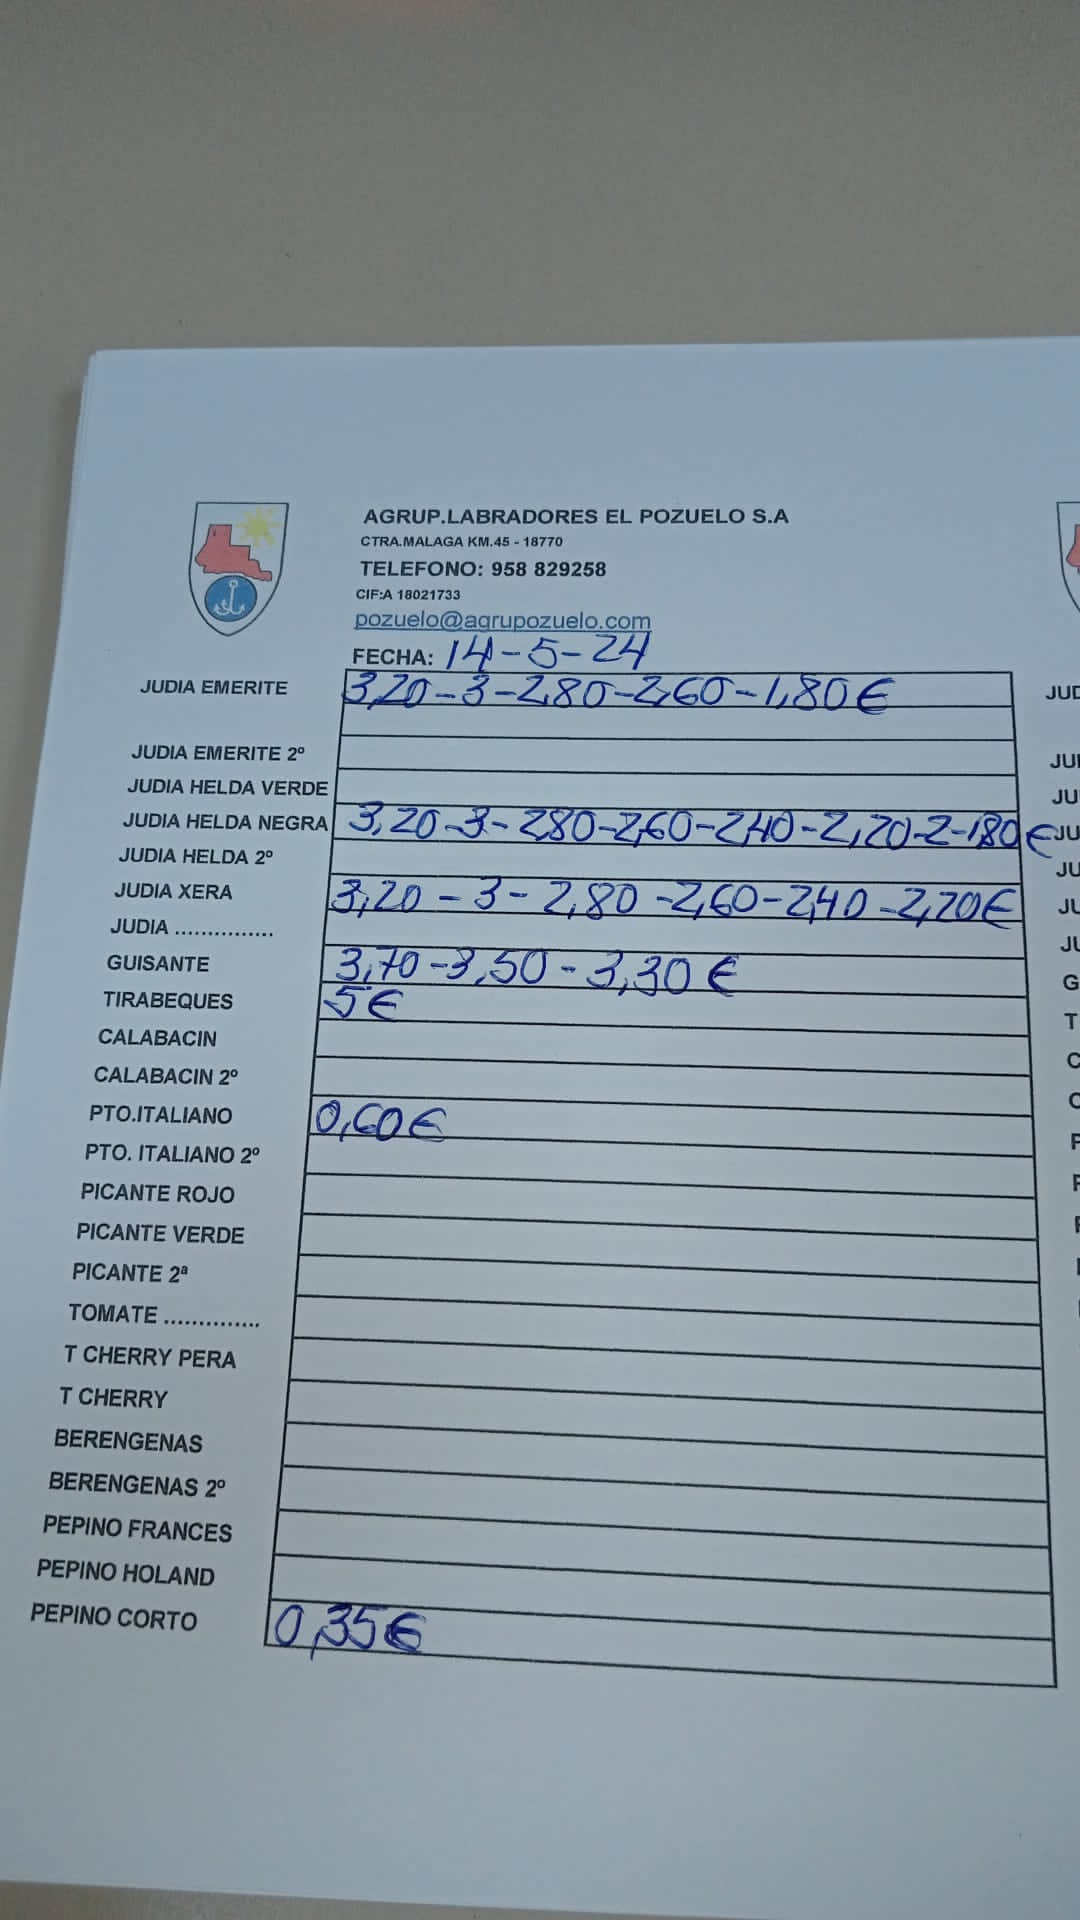 AGRUP.LABRADORES EL POZUELO S.A
CTRA.MALAGA KM.45 - 18770
TELEFONO: 958 829258
CIF:A 18021733
pozuelo@agrupozuelo.com
FECHA: 14-5-24
JUDIA EMERITE 3,20-3-2,80-2,60-1,80€
JUDIA EMERITE 2º
JUDIA HELDA VERDE
JUDIA HELDA NEGRA 3,20-3-2,80-2,60-2,40-2,20-2-1,80€
JUDIA HELDA 2º
JUDIA XERA 3,20-3-2,80-2,60-2,40-2,20€
JUDIA ...............
GUISANTE 3,70-3,50-3,30€
TIRABEQUES 5€
CALABACIN
CALABACIN 2º
PTO.ITALIANO 0,60€
PTO. ITALIANO 2º
PICANTE ROJO
PICANTE VERDE
PICANTE 2ª
TOMATE ..............
T CHERRY PERA
T CHERRY
BERENGENAS
BERENGENAS 2º
PEPINO FRANCES
PEPINO HOLAND
PEPINO CORTO 0,35€